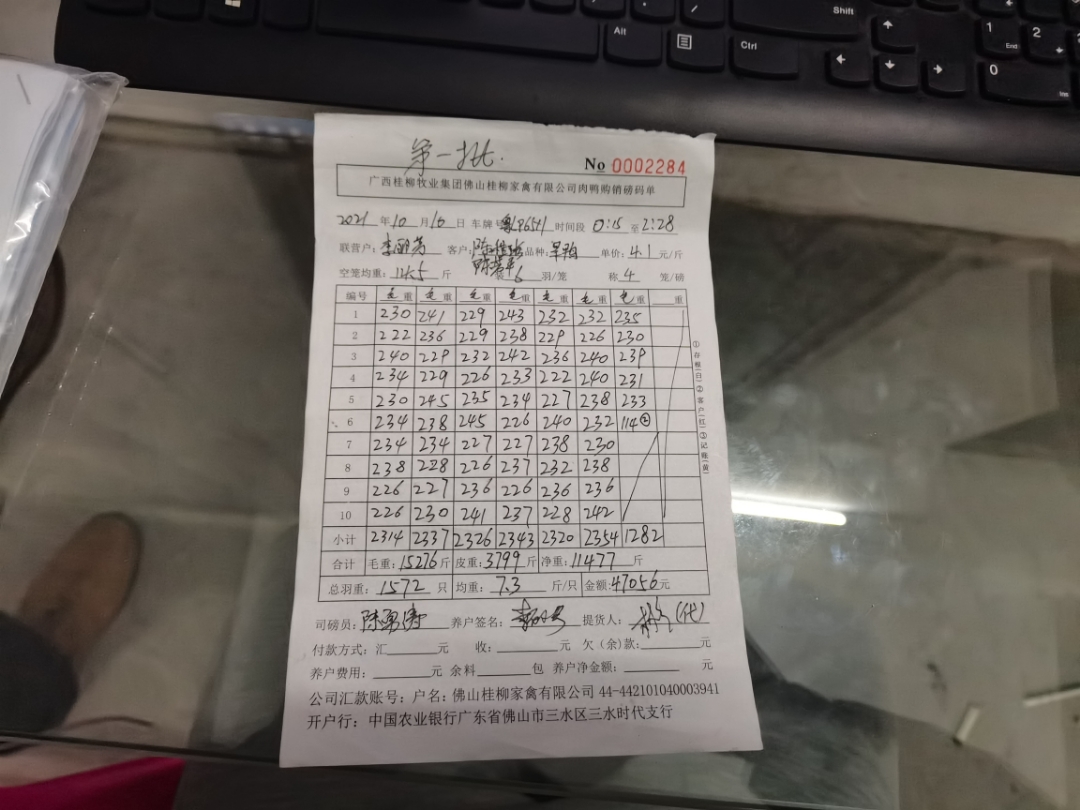 Shift
Alt
Ctrl
1
End
2
0
Ins
第一批.
No 0002284
广西桂柳牧业集团佛山桂柳家禽有限公司肉鸭购销磅码单
2021 年 10 月 16 日 车牌号 时间段 0:15 至 2:28
联营户: 李丽芳 客户: 品种: 单价: 4.1 元/斤
空笼均重: 14.5 斤 装 6 羽/笼 称 4 笼/磅
编号 毛重 毛重 毛重 毛重 毛重 毛重 毛重 重
1 230 241 229 243 232 232 235
2 222 236 229 238 229 226 230
3 240 229 232 242 236 240 239
4 234 229 226 233 222 240 231
5 230 245 235 234 227 238 233
6 234 238 245 226 240 232 114②
7 234 234 227 227 238 230
8 238 228 226 237 232 238
9 226 227 236 226 236 236
10 226 230 241 237 228 242
小计 2314 2337 2326 2343 2320 2354 1282
合计 毛重: 15276 斤 皮重: 3799 斤 净重: 11477 斤
总羽重: 1572 只 均重: 7.3 斤/只 金额: 47056 元
①存根(白)②客户(红)③记账(黄)
司磅员: 陈勇涛 养户签名: 提货人: (代)
付款方式: 汇 元 收: 元 欠(余)款: 元
养户费用: 元 余料 包 养户净金额: 元
公司汇款账号: 户名: 佛山桂柳家禽有限公司 44-442101040003941
开户行: 中国农业银行广东省佛山市三水区三水时代支行